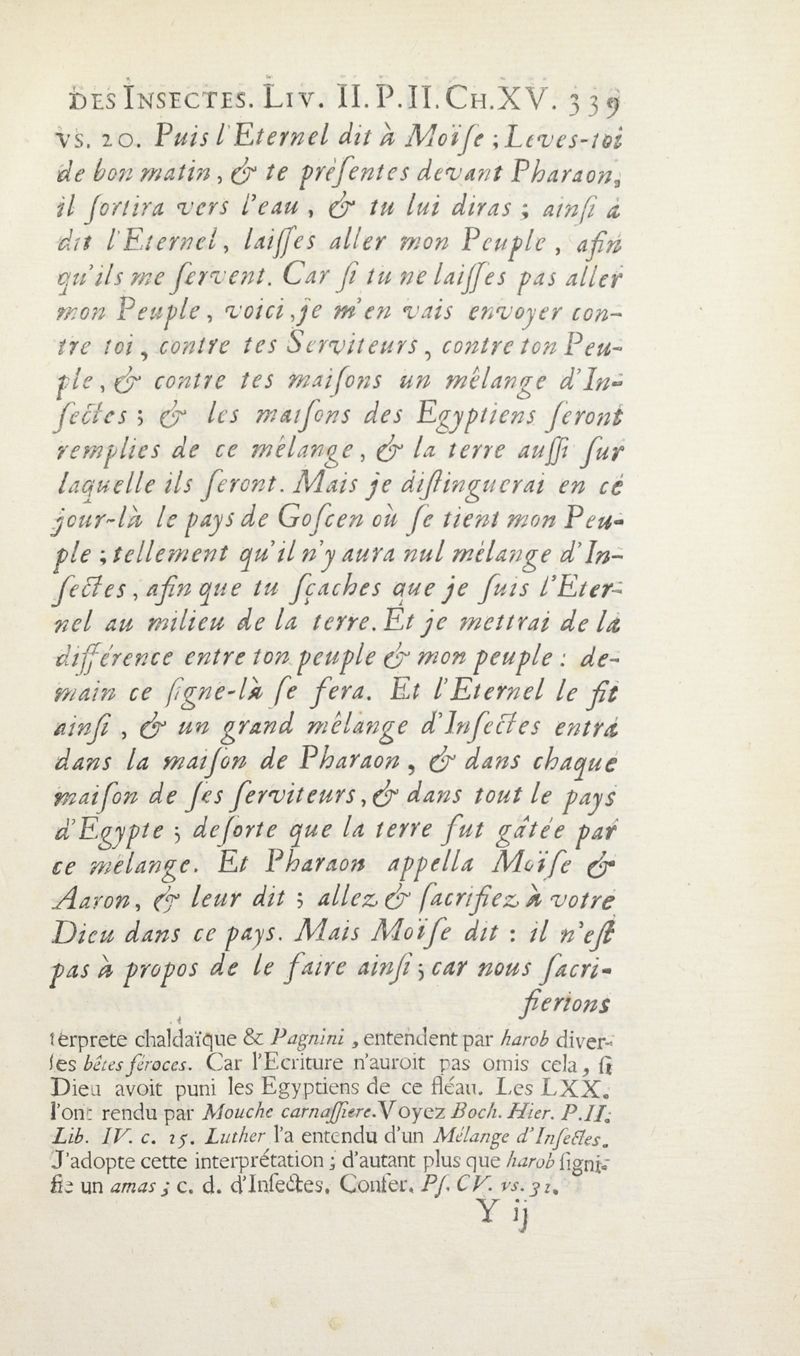 DES INSECTES. LIV. II. P. II. CH. XV. 339
vs. 20. Puis l'Eternel dit à Moïſe ; Leves-toi
de bon matin, & te préſentes devant Pharaon,
il ſortira vers l'eau, & tu lui diras ; ainſi a
dit l'Eternel, laiſſes aller mon Peuple, afin
qu'ils me ſervent. Car ſi tu ne laiſſes pas aller
mon Peuple, voici, je m'en vais envoyer con-
tre toi, contre tes Serviteurs, contre ton Peu-
ple, & contre tes maiſons un mêlange d'In-
ſectes ; & les maiſons des Egyptiens ſeront
remplies de ce mêlange, & la terre auſſi ſur
laquelle ils ſeront. Mais je diſtinguerai en cé
jour-là le pays de Goſcen où ſe tient mon Peu-
ple ; tellement qu'il n'y aura nul mêlange d'In-
ſectes, afin que tu ſçaches que je ſuis l'Eter-
nel au milieu de la terre. Et je mettrai de la
différence entre ton peuple & mon peuple : de-
main ce ſigne-là ſe fera. Et l'Eternel le fit
ainſi, & un grand mêlange d'Inſectes entra
dans la maiſon de Pharaon, & dans chaque
maiſon de ſes ſerviteurs, & dans tout le pays
d'Egypte ; deſorte que la terre fut gâtée par
ce mêlange. Et Pharaon appella Moïſe &
Aaron, & leur dit ; allez & ſacrifiez à votre
Dieu dans ce pays. Mais Moïſe dit : il n'eſt
pas à propos de le faire ainſi ; car nous ſacri-
fierions
térprete chaldaïque & Pagnini, entendent par harob diver-
ſes bêtes féroces. Car l'Ecriture n'auroit pas omis cela, ſi
Dieu avoit puni les Egyptiens de ce fléau. Les LXX.
l'ont rendu par Mouche carnaſſiere. Voyez Boch. Hier. P. II.
Lib. IV. c. 15. Luther l'a entendu d'un Mêlange d'Inſectes.
J'adopte cette interprétation ; d'autant plus que harob ſigni-
fie un amas ; c. d. d'Inſectes. Confer. Pſ. CV. vs. 31.
Y ij